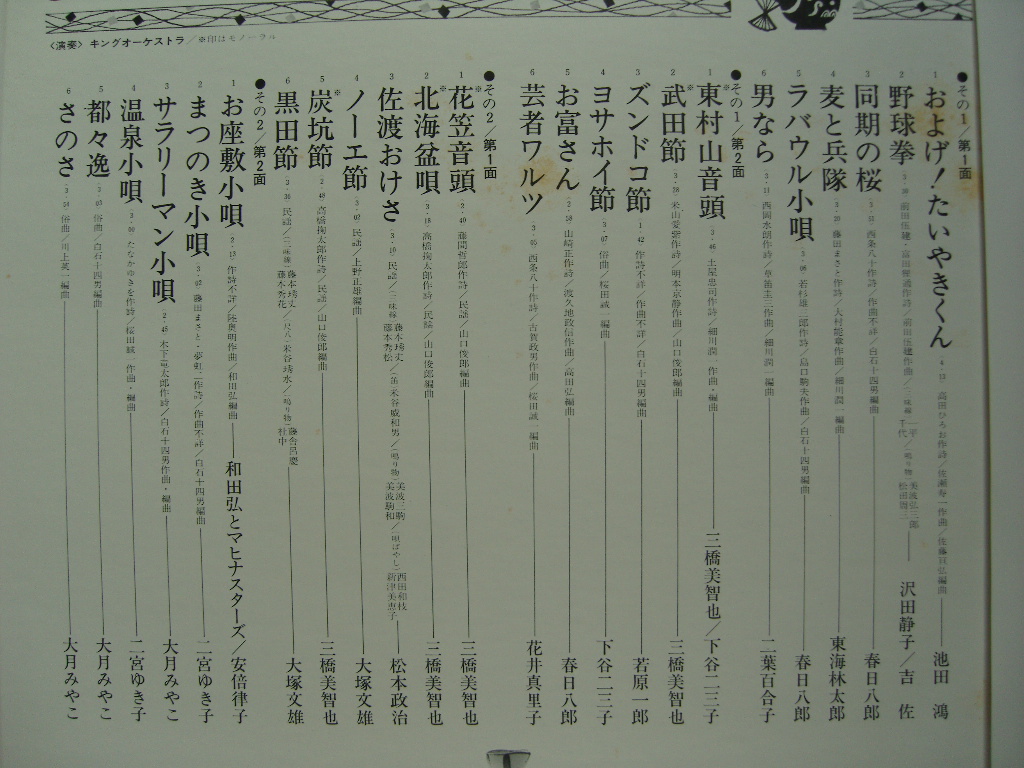 〈演奏〉キングオーケストラ/※印はモノーラル
●その1/第1面
1 およげ!たいやきくん 高田ひろお作詩/佐瀬寿一作曲/佐藤 弘編曲 池田 鴻
2 野球拳 前田伍健 沢田静子/吉 佐
3 同期の桜 西条八十作詩/作曲不詳/白石十四男編曲 春日八郎
4 麦と兵隊 藤田まさと作詩/大村能章作曲/細川潤一編曲 東海林太郎
5 ラバウル小唄 若杉雄三郎作詩/島口駒夫作曲/白石十四男編曲 春日八郎
6 男なら 3・11 西岡水朗作詩/草笛圭三作曲/細川潤一編曲 二葉百合子
●その1/第2面
1 ※東村山音頭 3・46 土屋忠司作詩/細川潤一作曲・編曲 三橋美智也/下谷二三子
2 ※武田節 3・38 米山愛紫作詩/明本京静作曲/山口俊郎編曲 三橋美智也
3 ズンドコ節 1・42 作詩不詳/作曲不詳/白石十四男編曲 若原一郎
4 ヨサホイ節 3・07 俗曲/桜田誠一編曲 下谷二三子
5 お富さん 2・58 山崎正作詩/渡久地政信作曲/高田弘編曲 春日八郎
6 芸者ワルツ 西条八十作詩/古賀政男作曲/桜田誠一編曲 花井真里子
●その2/第1面
1 ※花笠音頭 2・49 藤間哲郎作詩/民謡/山口俊郎編曲 三橋美智也
2 ※北海盆唄 3・18 高橋掬太郎作詩/民謡/山口俊郎編曲 三橋美智也
3 佐渡おけさ 3・19 民謡/〈三味線〉藤本琇丈 藤本秀松/〈笛〉米谷威和男/〈鳴り物〉美波三駒 美波駒和/〈唄ばやし〉西田和枝 新津美恵子 松本政治
4 ノーエ節 3・02 民謡/上野正雄編曲 大塚文雄
5 ※炭坑節 2・48 高橋掬太郎作詩/民謡/山口俊郎編曲 三橋美智也
6 黒田節 3・36 民謡/〈三味線〉藤本琇丈 藤本秀花/〈尺八〉米谷琇水/〈鳴り物〉藤舎呂慶 社中 大塚文雄
●その2/第2面
1 お座敷小唄 2・13 作詩不詳/陸奥明作曲/和田弘編曲 和田弘とマヒナスターズ/安倍律子
2 まつのき小唄 3・07 藤田まさと・夢虹二作詩/作曲不詳/白石十四男編曲 二宮ゆき子
3 サラリーマン小唄 2・45 木下竜太郎作詩/白石十四男作曲・編曲 大月みやこ
4 温泉小唄 3・00 たなかゆきを作詩/桜田誠一作曲・編曲 二宮ゆき子
5 都々逸 俗曲/白石十四男編曲 大月みやこ
6 さのさ 3・54 俗曲/川上英一編曲 大月みやこ